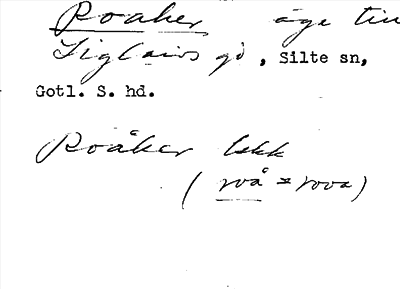 Roaker äga till
Siglaivs gd, Silte sn,
Gotl. S. hd.
Roåker lekk
( roå = rova)